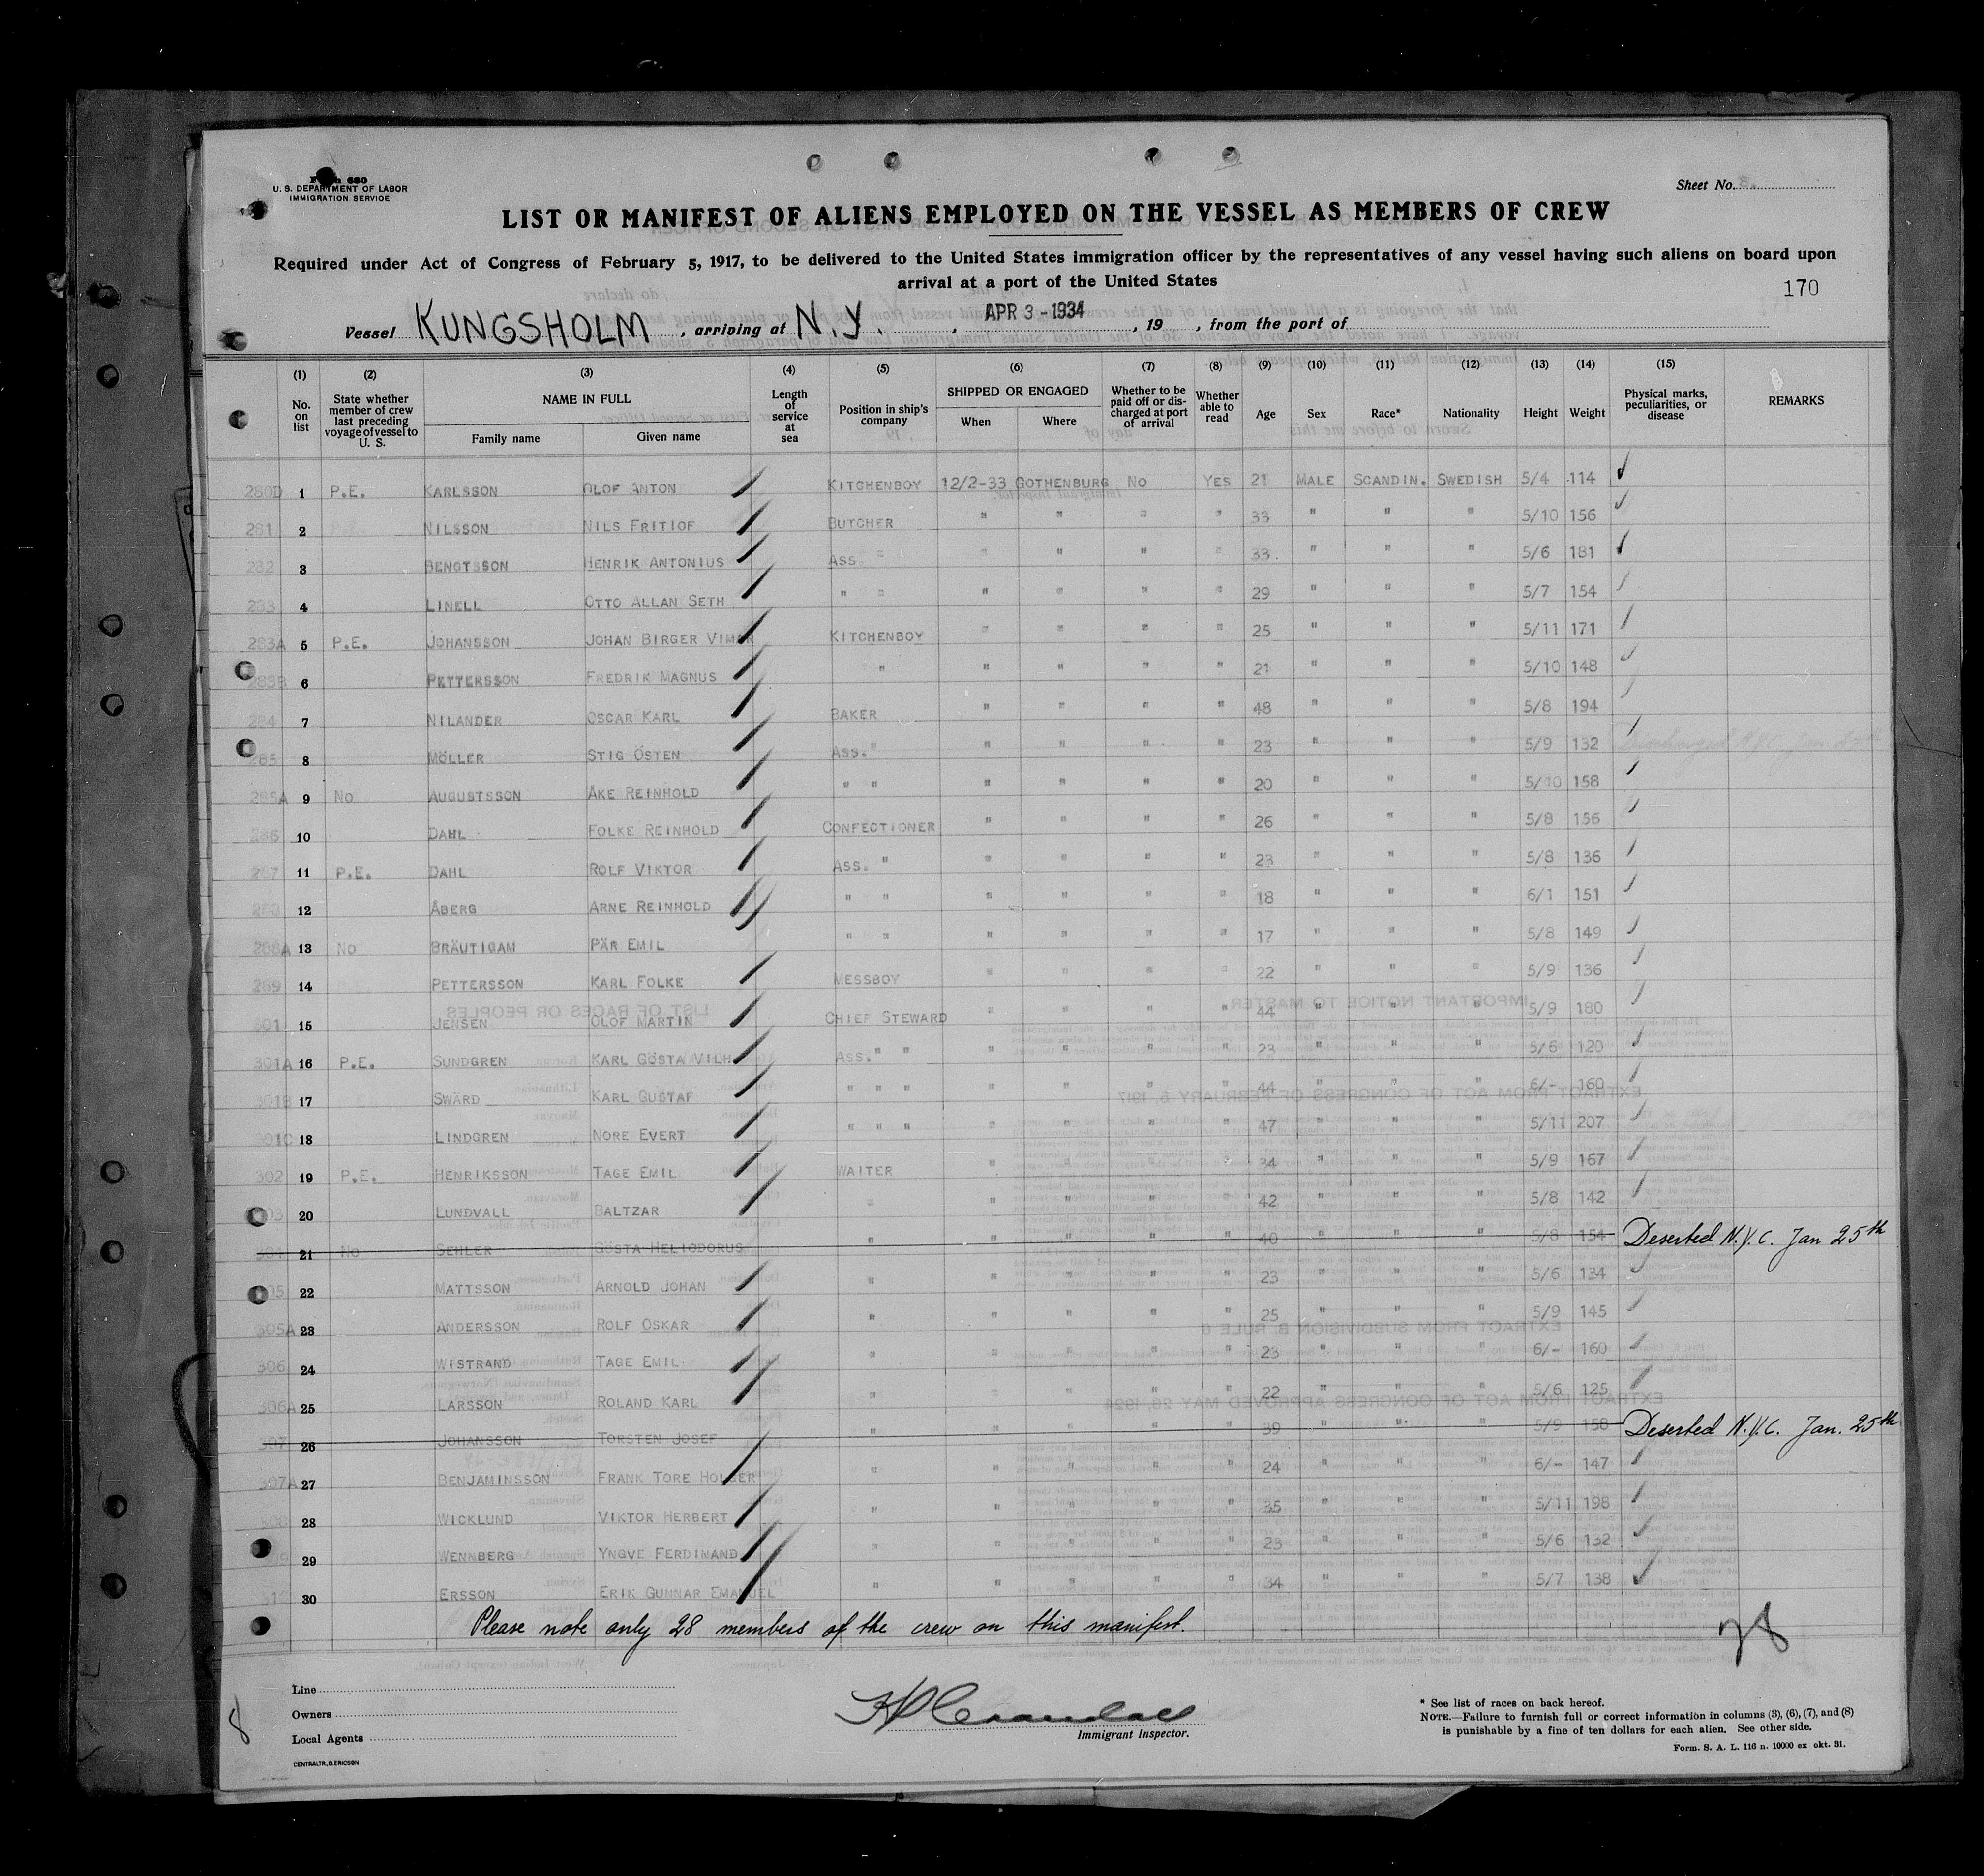 Form 680
U. S. DEPARTMENT OF LABOR
IMMIGRATION SERVICE
Sheet No. 8.
LIST OR MANIFEST OF ALIENS EMPLOYED ON THE VESSEL AS MEMBERS OF CREW
Required under Act of Congress of February 5, 1917, to be delivered to the United States immigration officer by the representatives of any vessel having such aliens on board upon
arrival at a port of the United States
170
Vessel KUNGSHOLM, arriving at N.Y., APR 3 - 1934, 19 , from the port of
(1) (2) (3) (4) (5) (6) (7) (8) (9) (10) (11) (12) (13) (14) (15)
No. on list | State whether member of crew last preceding voyage of vessel to U. S. | NAME IN FULL | Family name | Given name | Length of service at sea | Position in ship's company | SHIPPED OR ENGAGED | When | Where | Whether to be paid off or discharged at port of arrival | Whether able to read | Age | Sex | Race* | Nationality | Height | Weight | Physical marks, peculiarities, or disease | REMARKS
280D 1 P.E. KARLSSON OLOF ANTON KITCHENBOY 12/2-33 GOTHENBURG NO YES 21 MALE SCANDIN. SWEDISH 5/4 114
281 2 NILSSON NILS FRITIOF BUTCHER " " " " 33 " " " 5/10 156
282 3 BENGTSSON HENRIK ANTONIUS ASS. " " " " " 33 " " " 5/6 181
283 4 LINELL OTTO ALLAN SETH " " " " " " 29 " " " 5/7 154
283A 5 P.E. JOHANSSON JOHAN BIRGER VIMAR KITCHENBOY " " " " 25 " " " 5/11 171
283B 6 PETTERSSON FREDRIK MAGNUS " " " " " 21 " " " 5/10 148
284 7 NILANDER OSCAR KARL BAKER " " " " 48 " " " 5/8 194
285 8 MÖLLER STIG ÖSTEN ASS. " " " " " 23 " " " 5/9 132
285A 9 NO AUGUSTSSON ÅKE REINHOLD " " " " " " 20 " " " 5/10 158
286 10 DAHL FOLKE REINHOLD CONFECTIONER " " " " 26 " " " 5/8 156
287 11 P.E. DAHL ROLF VIKTOR ASS. " " " " " 23 " " " 5/8 136
288 12 ÅBERG ARNE REINHOLD " " " " " " 18 " " " 6/1 151
288A 13 NO BRÄUTIGAM PÄR EMIL " " " " " " 17 " " " 5/8 149
289 14 PETTERSSON KARL FOLKE MESSBOY " " " " 22 " " " 5/9 136
301 15 JENSEN OLOF MARTIN CHIEF STEWARD " " " " 44 " " " 5/9 180
301A 16 P.E. SUNDGREN KARL GÖSTA VILH ASS. " " " " " " 23 " " " 5/6 120
301B 17 SWÄRD KARL GUSTAF " " " " " " " 44 " " " 6/- 160
301C 18 LINDGREN NORE EVERT " " " " " " " 47 " " " 5/11 207
302 19 P.E. HENRIKSSON TAGE EMIL WAITER " " " " 34 " " " 5/9 167
303 20 LUNDVALL BALTZAR " " " " " 42 " " " 5/8 142
21 NO SEHLER GÖSTA HELIODORUS " " " " " 40 " " " 5/8 154 Deserted N.Y.C. Jan 25th
305 22 MATTSSON ARNOLD JOHAN " " " " " 23 " " " 5/6 134
305A 23 ANDERSSON ROLF OSKAR " " " " " 25 " " " 5/9 145
306 24 WISTRAND TAGE EMIL " " " " " 23 " " " 6/- 160
306A 25 LARSSON ROLAND KARL " " " " " 22 " " " 5/6 125
307 26 JOHANSSON TORSTEN JOSEF " " " " " 39 " " " 5/9 158 Deserted N.Y.C. Jan. 25th
307A 27 BENJAMINSSON FRANK TORE HOLGER " " " " " 24 " " " 6/- 147
308 28 WICKLUND VIKTOR HERBERT " " " " " 35 " " " 5/11 198
29 WENNBERG YNGVE FERDINAND " " " " " 23 " " " 5/6 132
30 ERSSON ERIK GUNNAR EMANUEL " " " " " 34 " " " 5/7 138
Please note only 28 members of the crew on this manifest.
28
Line
Owners
Local Agents
CENTRALTR. G. ERICSON
8
Immigrant Inspector.
* See list of races on back hereof.
NOTE.—Failure to furnish full or correct information in columns (3), (6), (7), and (8)
is punishable by a fine of ten dollars for each alien. See other side.
Form. S. A. L. 116 n. 10000 ex okt. 31.